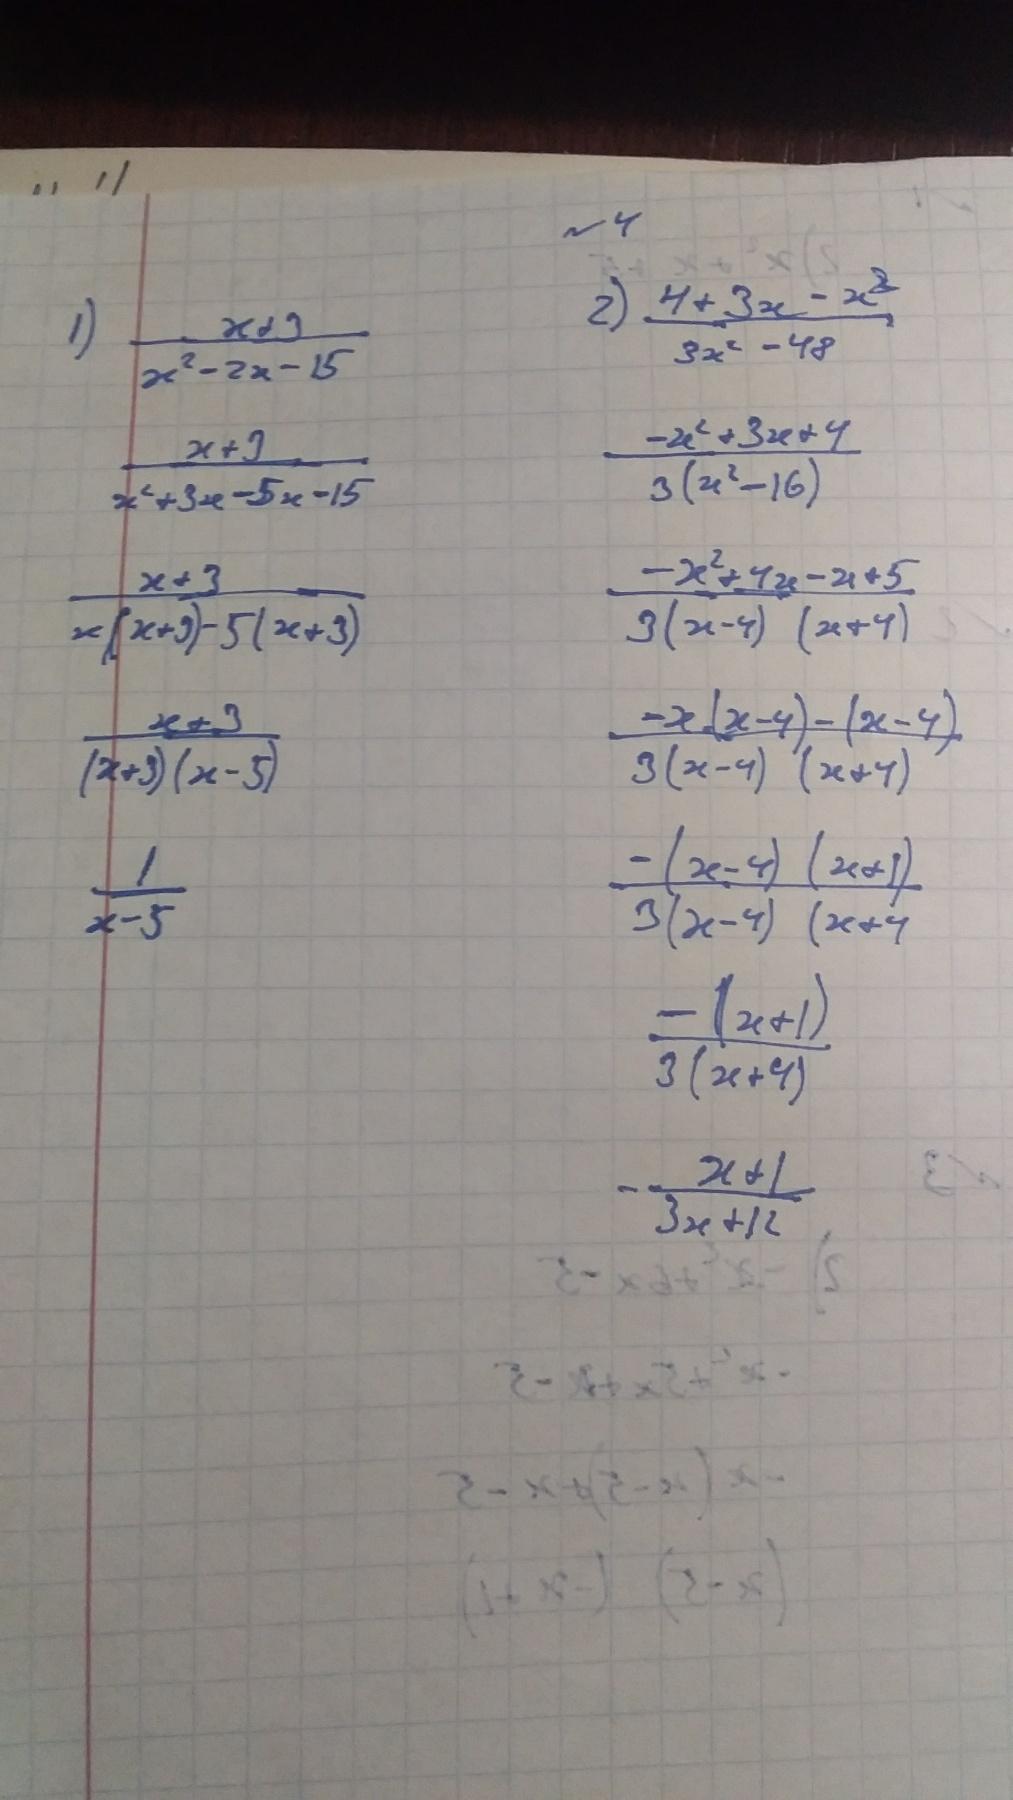 ~ 4
1) x+3 / x² - 2x - 15
x+3 / x² + 3x - 5x - 15
x+3 / x(x+3) - 5(x+3)
x+3 / (x+3)(x-5)
1 / x-5
2) 4 + 3x - x² / 3x² - 48
-x² + 3x + 4 / 3(x² - 16)
-x² + 4x - x + 5 / 3(x-4) (x+4)
-x(x-4) - (x-4) / 3(x-4) (x+4)
-(x-4) (x+1) / 3(x-4) (x+4
-(x+1) / 3(x+4)
- x+1 / 3x+12
3
2) -x² + 6x - 5
-x² + 5x + x - 5
-x(x-5) + x - 5
(x-5) (-x+1)